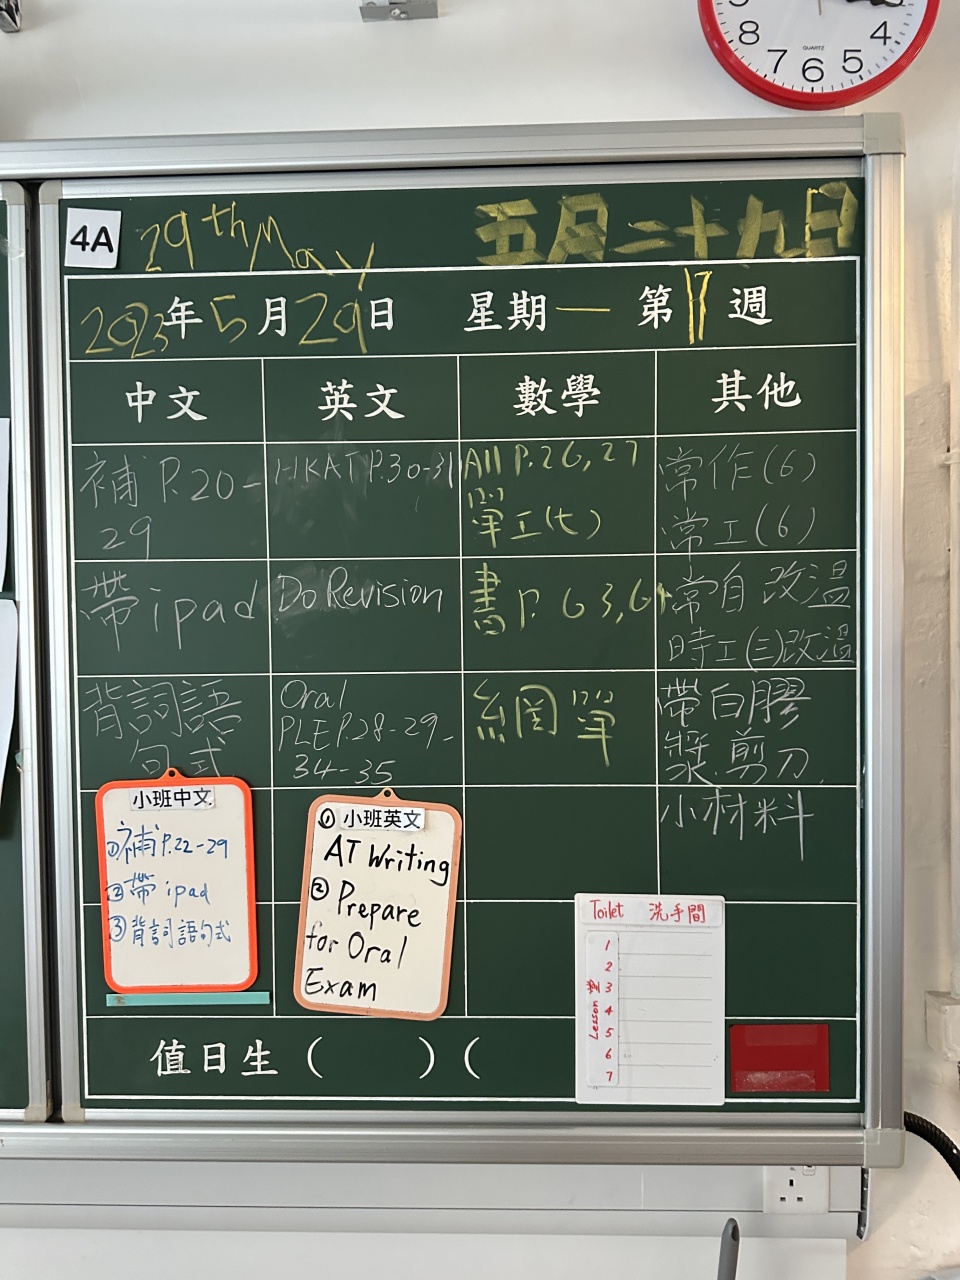 8
7
6
5
4
QUARTZ
4A
29th May
五月二十九日
2023年5月29日 星期一 第17週
中文
英文
數學
其他
補 P.20-
29
HKAT P.30-31
All P.26,27
單工(七)
常作(6)
常工(6)
帶ipad
Do Revision
書 P. 63,64
常自 改温
時工(三)改温
背詞語
句式
Oral
PLE P.28-29-
34-35
網單
帶白膠
漿.剪刀.
小材料
小班中文
①補P.22-29
②帶 ipad
③背詞語句式
① 小班英文
AT Writing
② Prepare
for Oral
Exam
Toilet 洗手間
Lesson
1
2
3
4
5
6
7
值日生 ( ) (